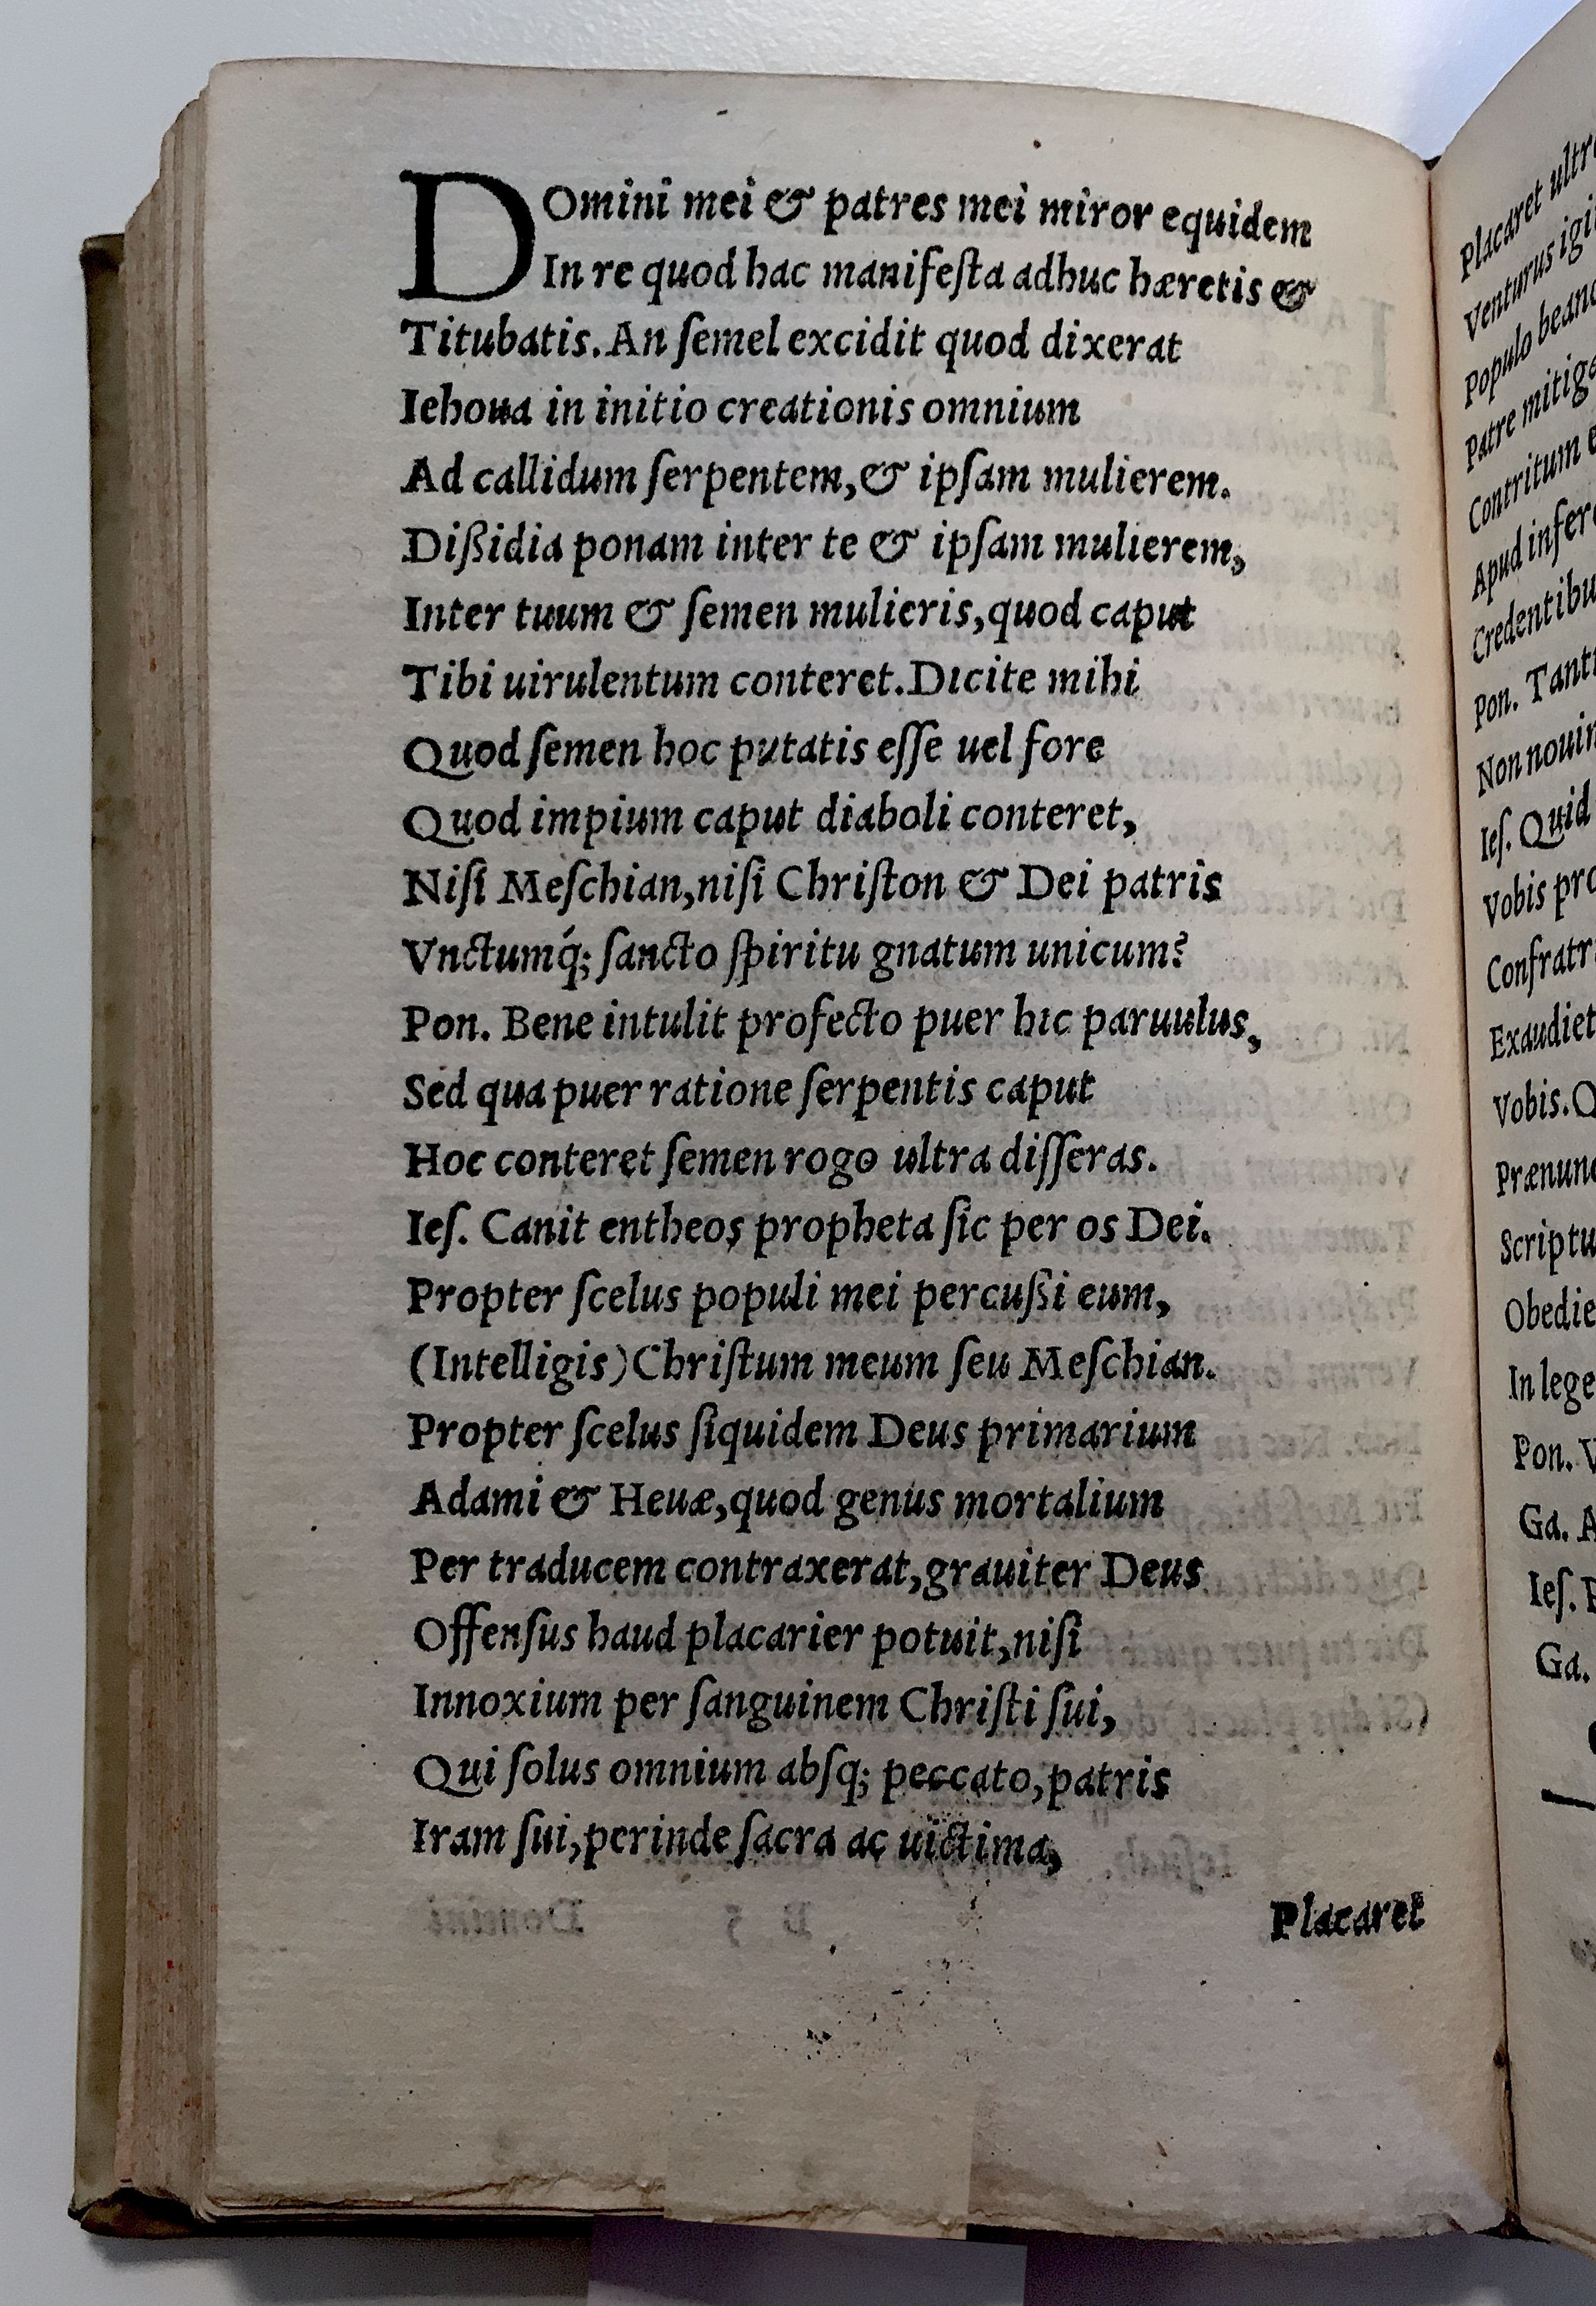 DOmini mei & patres mei miror equidem
In re quod hac manifeſta adhuc hæretis &
Titubatis. An ſemel excidit quod dixerat
Iehoua in initio creationis omnium
Ad callidum ſerpentem, & ipſam mulierem.
Dißidia ponam inter te & ipſam mulierem,
Inter tuum & ſemen mulieris, quod caput
Tibi uirulentum conteret. Dicite mihi
Quod ſemen hoc putatis eſſe uel fore
Quod impium caput diaboli conteret,
Niſi Meſchian, niſi Chriſton & Dei patris
Vnctumq́; ſancto ſpiritu gnatum unicum?
Pon. Bene intulit profecto puer hic paruulus,
Sed qua puer ratione ſerpentis caput
Hoc conteret ſemen rogo ultra diſſeras.
Ieſ. Canit entheos propheta ſic per os Dei.
Propter ſcelus populi mei percußi eum,
(Intelligis) Chriſtum meum ſeu Meſchian.
Propter ſcelus ſiquidem Deus primarium
Adami & Heuæ, quod genus mortalium
Per traducem contraxerat, grauiter Deus
Offenſus haud placarier potuit, niſi
Innoxium per ſanguinem Chriſti ſui,
Qui ſolus omnium abſq; peccato, patris
Iram ſui, perinde ſacra ac uictima,
Placaret
Placaret ultr
Venturus igi
Populo bean
Patre mitig
Contritum
Apud infer
Credentibu
Pon. Tant
Non nouin
Ieſ. Quid
Vobis pro
Confratr
Exaudiet
Vobis. Q
Prænunc
Scriptu
Obedie
In lege
Pon. V
Ga. A
Ieſ.
Ga.